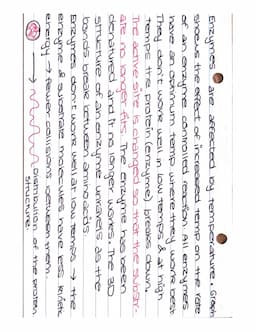 Enzymes are affected by temperature. Graph
shows the effect of increased temp on the rate
of an enzyme controlled reaction. All enzymes
have an optimum temp where they work best
They don't work well in low temps & at high
temps the protein (enzyme) breaks down.
The active site is changed so that the substr-
ate no longer fits. The enzyme has been
denatured and it no longer works. The 3D
structure of an enzyme is broken as the
bonds break between amino acids
Enzymes don't work well at low temps → the
enzyme & substrate molecules have less kinetic
energy → fewer collisions between them.
→ distribution of the protein
structure.